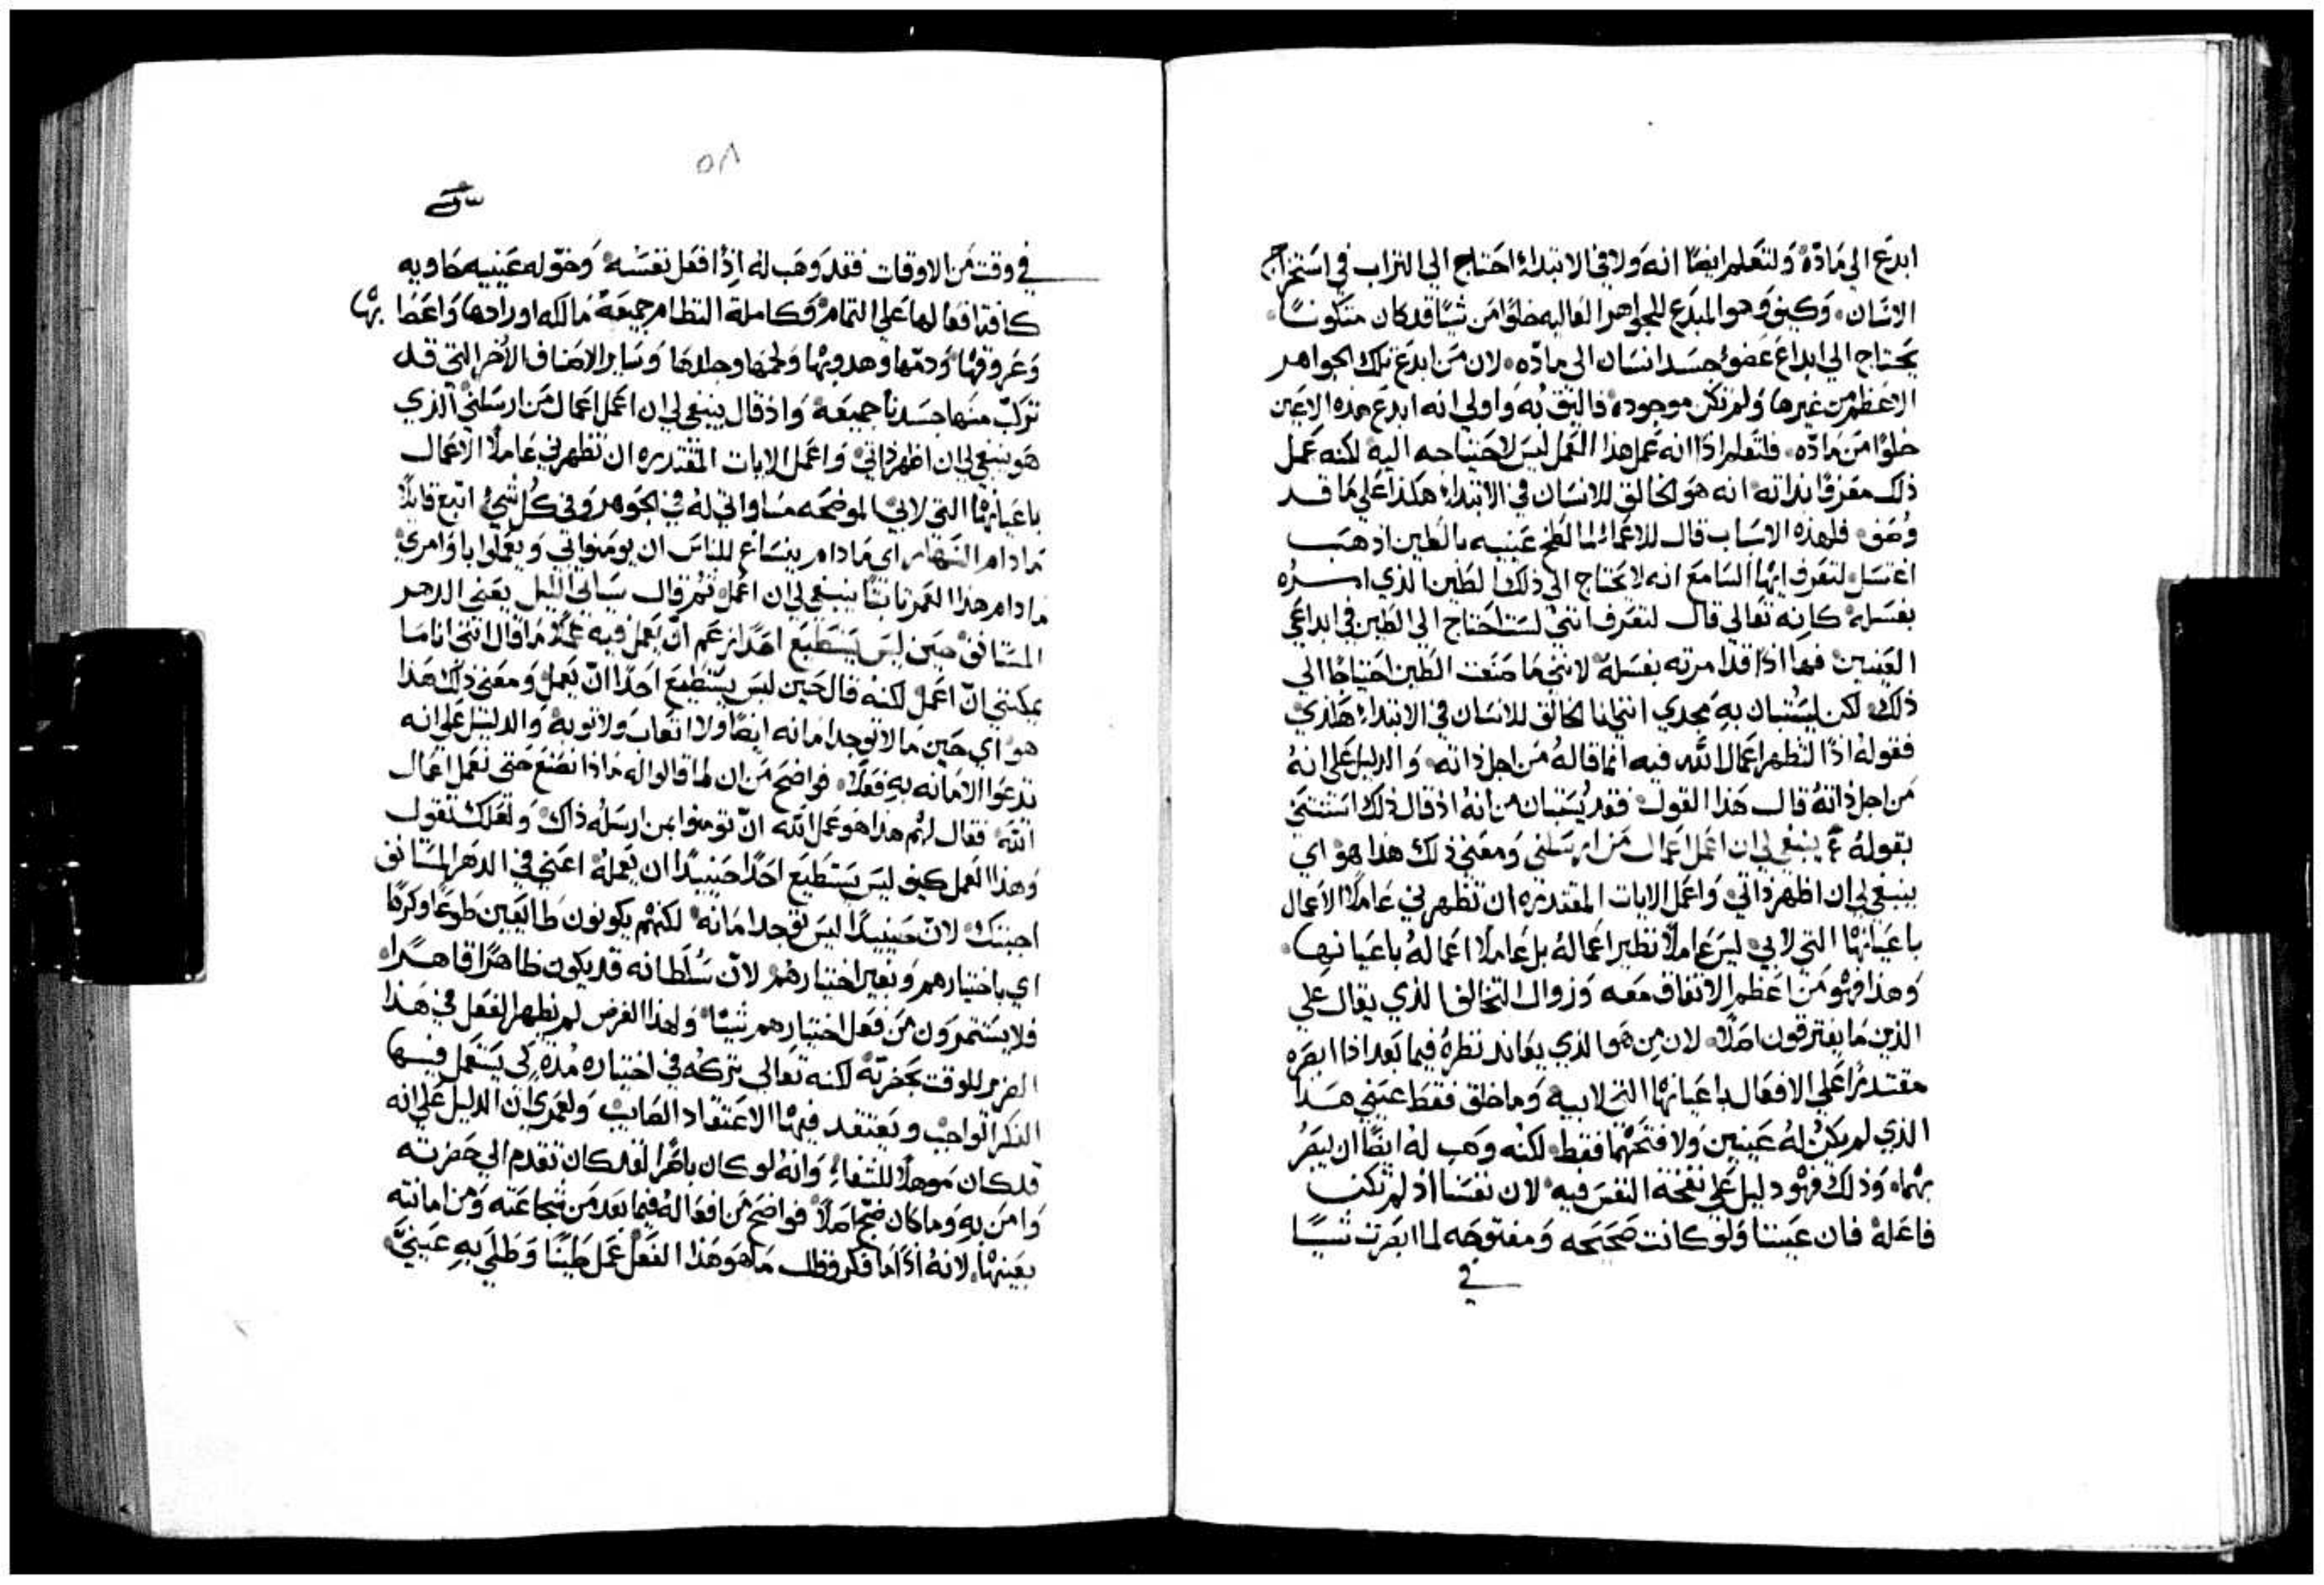 ابدع الي مادة ولتعلم ايضا انه ولا في الابتداء احتاج الي التراب في استخراج
الانسان وكيف وهو المبدع للجواهر العاليه خلوا من شيا قد كان متكونا
يحتاج الي ابداع عضو جسد انسان الي ماده لان من ابدع تلك الجواهر
الاعظم من غيرها ولم تكن موجوده فاليق به واولي انه ابدع هذه الاعين
خلوا من ماده فلتعلم اذا انه عمل هذا العمل ليس لاحتياجه اليه لكنه عمل
ذلك معرفا بذاته انه هو الخالق للانسان في الابتداء هكذا علي ما قد
وصف فلهذه الاسباب قال للاعما لما لطخ عينيه بالطين اذهب
اغتسل لتعرف ايها السامع انه لا يحتاج الي ذلك الطين الذي امره
بغسله كانه تعالي قال لتعرف انني لست احتاج الي الطين في ابداعي
العينين فها اذا قد امرته بغسله لانني ما صنعت الطين احتياجا الي
ذلك لكن ليستبان به مجدي انني انا الخالق للانسان في الابتداء هذي
فقوله اذا لتظهر اعمال الله فيه انما قاله من اجل ذاته والدليل علي انه
من اجل ذاته قال هذا القول فقد يستبان من انه اذ قال ذلك استثني
بقوله ينبغي لي ان اعمل اعمال من ارسلني ومعني ذلك هذا هو اي
ينبغي لي ان اظهر ذاتي واعمل الايات المقتدره ان تظهرني عاملا الاعمال
باعيانها التي لابي ليس عاملا نظير اعماله بل عاملا اعماله باعيانها
وهذا فهو من اعظم الاتفاق معه وزوال التخالف الذي يقال علي
الذين ما يفترقون اصلا لان من هو الذي يعاند نظره فيما بعد اذا ابصره
مقتدرا علي الافعال باعيانها التي لابيه وما خلق فقط عيني هذا
الذي لم يكن له عينين ولا فتحهما فقط لكنه وهب له ايضا ان يبصر
بهما وذلك فهو دليل علي نفخة النفس فيه لان نفسا اذ لم تكن
فاعله فان عيننا ولو كانت صحيحه ومفتوحه لما ابصرت شيا
في
٥٨
في وقت من الاوقات فقد وهب له اذا فعل نفسه وخوله عينيه حاويه
كافة افعالها علي التمام وكاملة النظام جميعه مالكه اورادها واعضابها
وعروقها ودمها وهدوبها ولحمها وجلدها وساير الاصناف الاخر التي قد
تركب منها جسدنا جميعه واذ قال ينبغي لي ان اعمل اعمال من ارسلني الذي
هو ينبغي لي ان اظهر ذاتي واعمل الايات المقتدره ان تظهرني عاملا الاعمال
باعيانها التي لابي الموضحه مساواتي له في الجوهر وفي كل شي اتبع قايلا
ما دام النهار اي مادام ينساغ للناس ان يومنوا بي ويعملوا باوامري
مادام هذا العمر ثابتا ينبغي لي ان اعمل ثم قال سياتي الليل يعني الدهر
المستانف حين ليس يستطيع احدا زعم ان يعمل فيه عملا ما قال انني انا ما
يمكنني ان اعمل لكنه قال حين ليس يستطيع احدا ان يعمل ومعني ذلك هذا
هو اي حين ما لا توجد امانه ايضا ولا اتعاب ولا توبه والدليل علي انه
تدعوا الامانه به فعلا فواضح من ان لما قالوا له ماذا نصنع حتي نعمل اعمال
الله فقال لهم هذا هو عمل الله ان تومنوا بمن ارسله ذاك ولعلك تقول
وهذا العمل كيف ليس يستطيع احدا حينيذا ان يعمله اعني في الدهر المستانف
اجبتك لان حينيذا ليس توجد امانه لكنهم يكونون طايعين طوعا وكرها
اي باختيارهم وبغير اختيارهم لان سلطانه قد يكون ظاهرا قاهرا
فلا يستثمرون من فعل اختيارهم شيا ولهذا الغرض لم يظهر الفعل في هذا
الضرير للوقت بحضرته لكنه تعالي تركه في اختياره مده كي يستعمل فيها
الفكر الواجب ويعتقد فيها الاعتقاد الصايب ولعمري ان الدليل علي انه
قد كان موهلا للشفاء وانه لو كان باصرا لقد كان تقدم الي حضرته
وامن به وما كان ضجع اصلا فواضح من افعاله فيما بعد من شجاعته ومن امانته
بعينها لانه اذ اما فكر وقال ما هو هذا الفعل عمل طينا وطلي به عيني